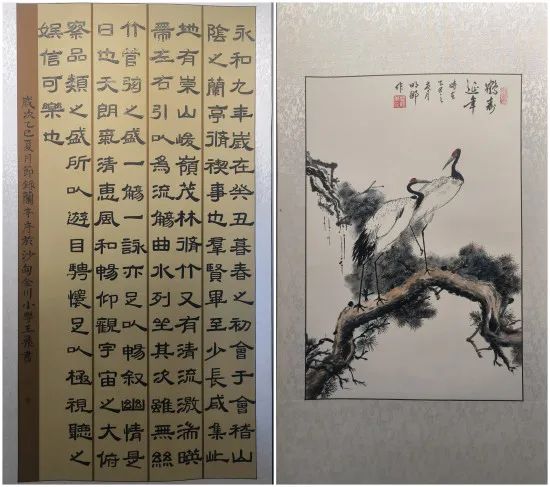 永和九年歲在癸丑暮春之初會于會稽山
陰之蘭亭脩禊事也羣賢畢至少長咸集此
地有崇山峻嶺茂林脩竹又有清流激湍暎
帶左右引以為流觴曲水列坐其次雖無絲
竹管弦之盛一觴一詠亦足以暢敘幽情是
日也天朗氣清惠風和暢仰觀宇宙之大俯
察品類之盛所以遊目騁懷足以極視聽之
娛信可樂也
歲次乙巳夏月節錄蘭亭序於沙甸金川小學王飛書
鶴壽
延年
時在
乙巳之
夏月
作